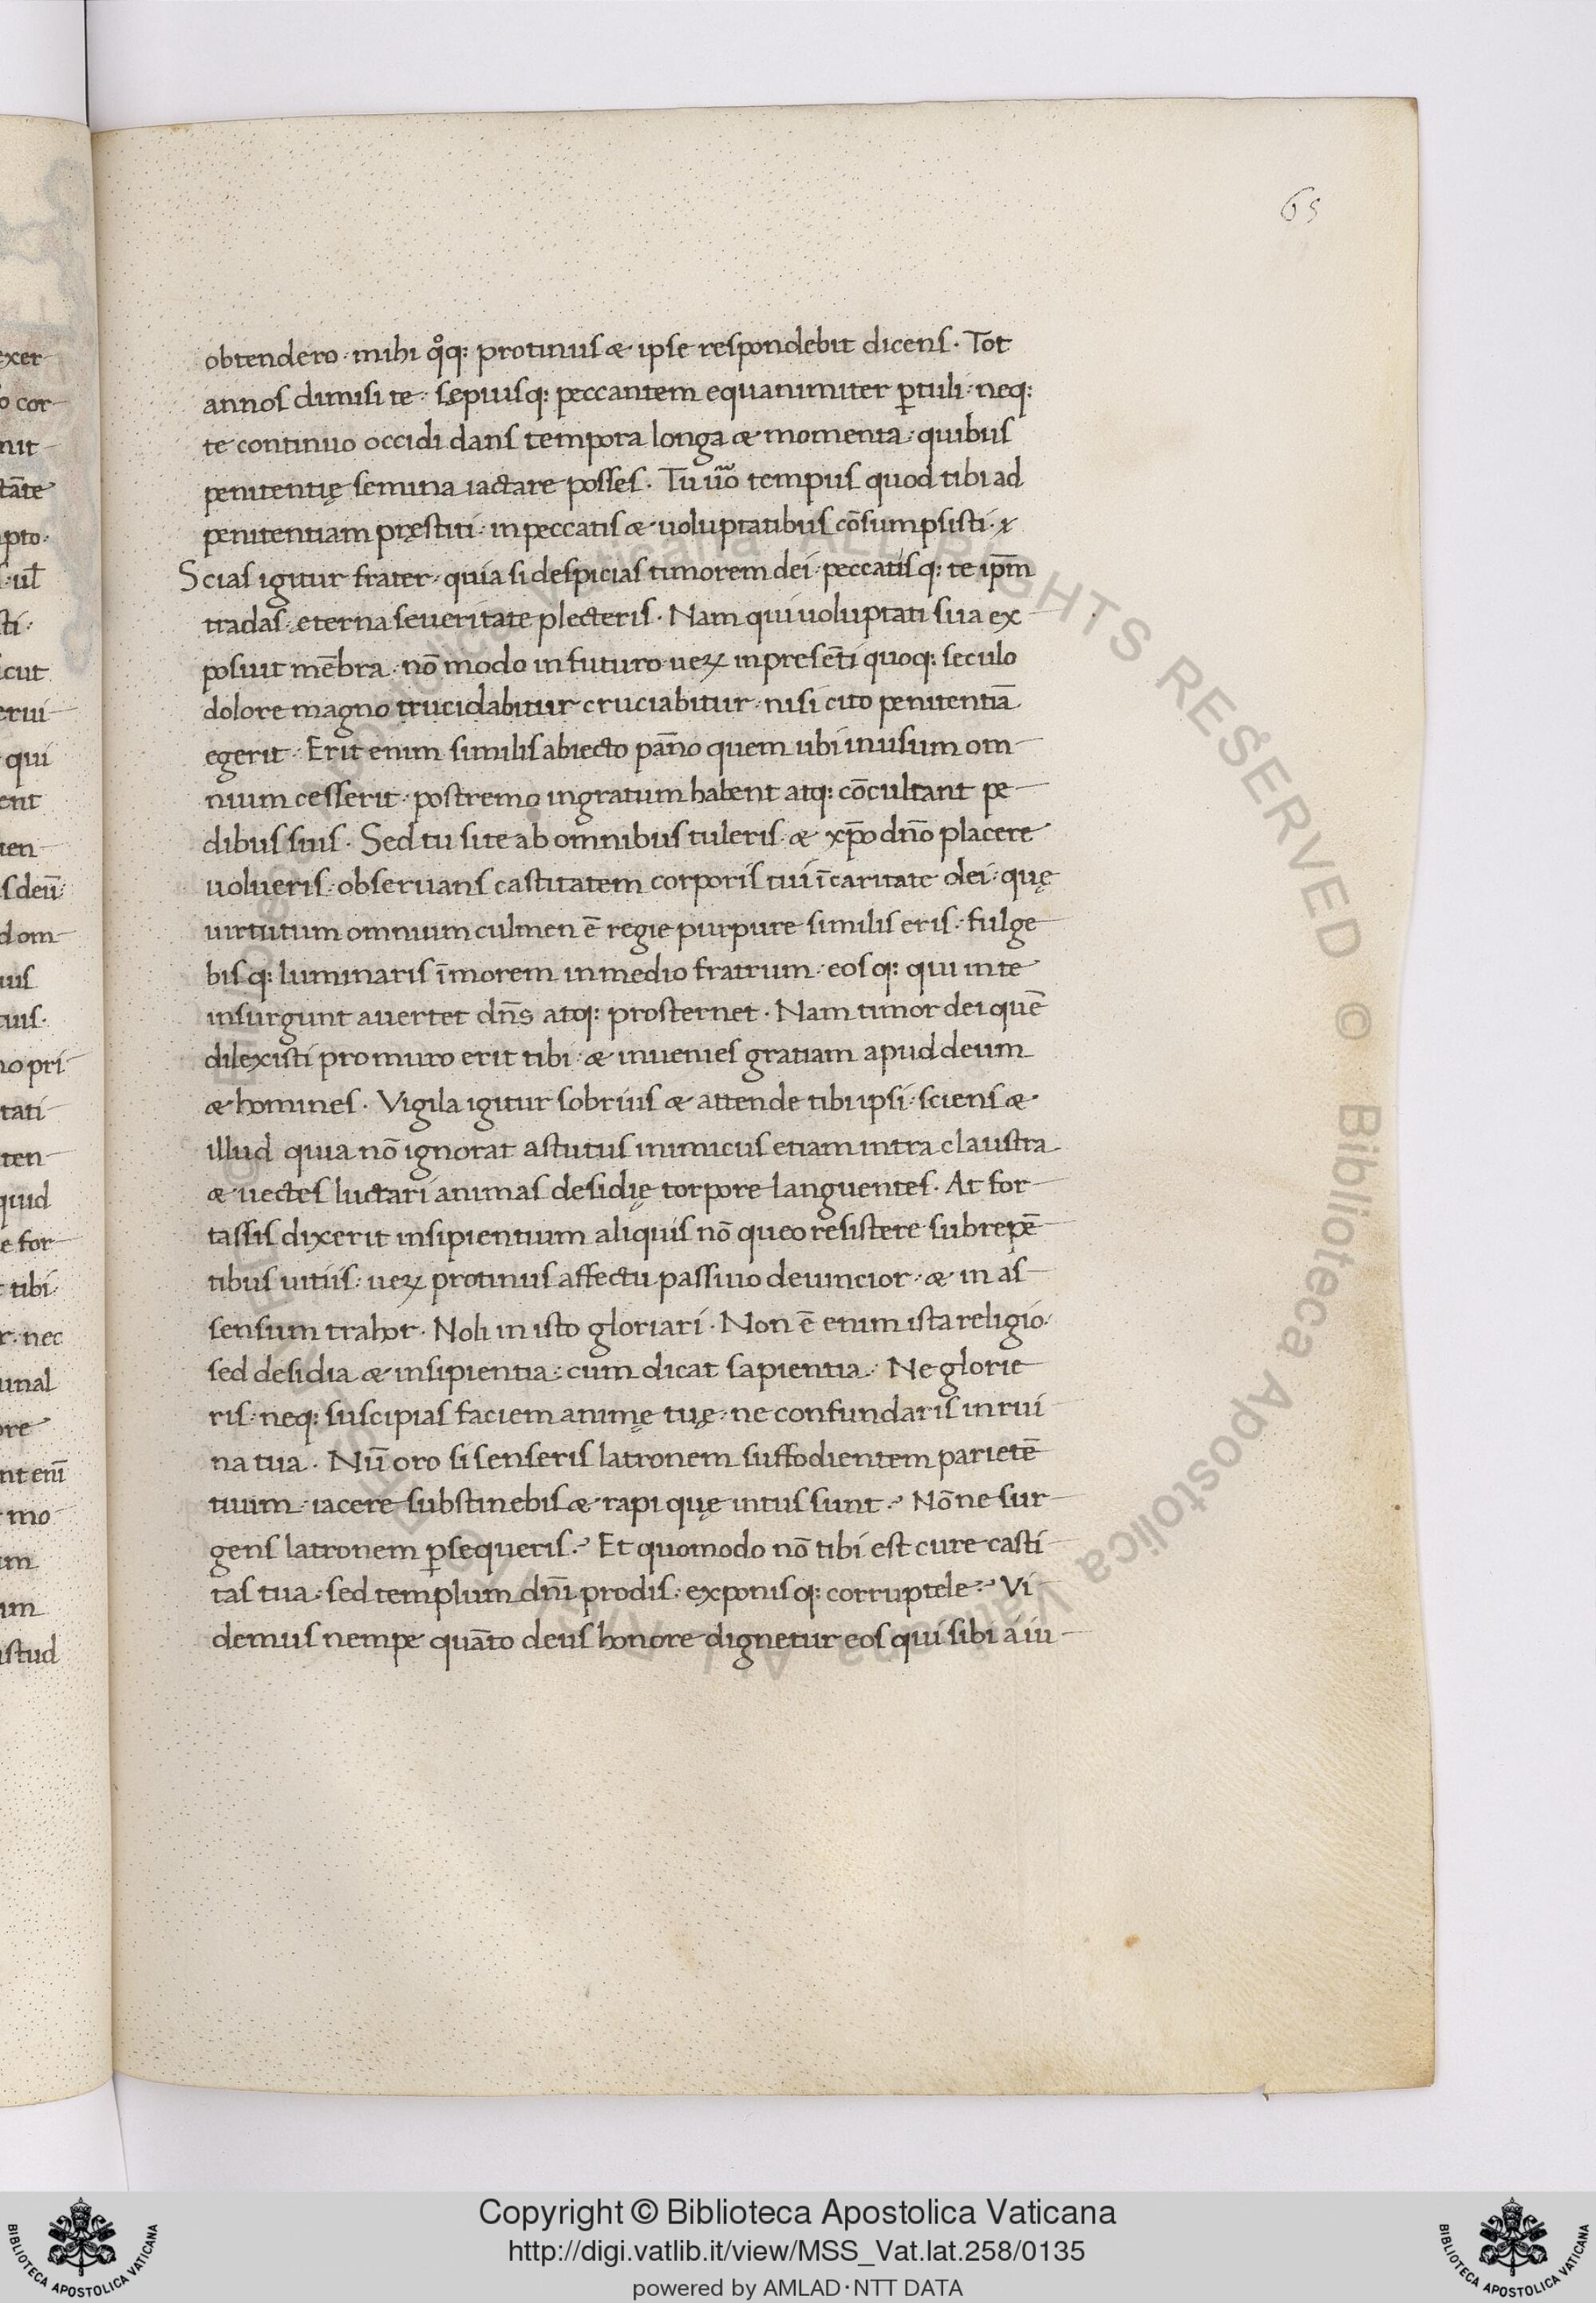 65
obtendero · mihi qͦq: protinus æ ipse respondebit dicens · Tot
annos dimisi te · sępiusq: peccantem equanimiter ꝑtuli · neq:
te continuo occidi dans tempora longa æ momenta · quibus
penitentię semina iactare posses · Tu ũo tempus quod tibi ad
penitentiam pręstiti · in peccatis æ uoluptatibus cōsumpsisti ·
Scias igitur frater · quia si despicias timorem dei · peccatisq: te ip̄m
tradas · eterna seueritate plecteris · Nam qui uoluptati sua ex
posuit mēbra · nō modo in futuro ueꝝ in presēti quoq: seculo
dolore magno trucidabitur cruciabitur · nisi cito penitentiā
egerit · Erit enim similis abiecto pāno quem ubi in usum om
nium cesserit · postremo ingratum habent atq: cōcultant pe
dibus suis · Sed tu si te ab omnibus tuleris · æ xp̄o dn̄o placere
uolueris · obseruans castitatem corporis tui ī caritate dei · quę
uirtutum omnium culmen ē regie purpure similis eris · fulge
bisq: luminaris ī morem in medio fratrum · eosq: qui in te
insurgunt auertet dn̄s atq: prosternet · Nam timor dei quē
dilexisti pro muro erit tibi · æ inuenies gratiam apud deum
æ homines · Vigila igitur sobrius æ attende tibi ipsi · sciens æ
illud quia nō ignorat astutus inimicus etiam intra claustra
æ uectes luctari animas desidię torpore languentes · At for
tassis dixerit insipientium aliquis nō queo resistere subrepē
tibus uitiis · ueꝝ protinus affectu passiuo deuincior · æ in as
sensum trahor · Noli in isto gloriari · Non ē enim ista religio ·
sed desidia æ insipientia · cum dicat sapientia · Ne glorie
ris · neq: suscipias faciem animę tuę · ne confundaris in rui
na tua · Nū oro si senseris latronem suffodientem parietē
tuum · iacere substinebis æ rapi quę intus sunt ? Nōne sur
gens latronem ꝑsequeris ? Et quomodo nō tibi est cure casti
tas tua · sed templum dn̄i prodis · exponisq: corruptele ? Vi
demus nempe quāto deus honore dignetur eos qui sibi a iu
Copyright © Biblioteca Apostolica Vaticana
http://digi.vatlib.it/view/MSS_Vat.lat.258/0135
powered by AMLAD·NTT DATA